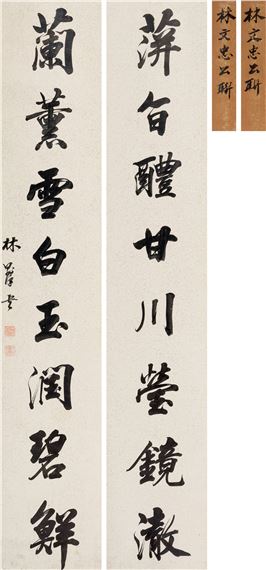 蓱旨醴甘川瑩鏡澈
蘭薰雪白玉潤碧鮮
林則徐
林文忠公聯
林文忠公聯